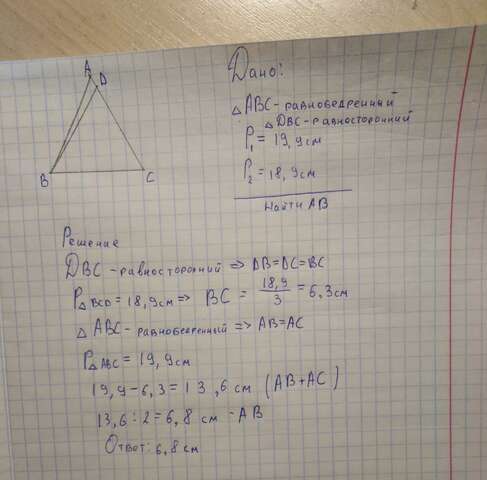 A
D
B
C
Дано:
△ ABC - равнобедренный
△ DBC - равносторонний
P₁ = 19,9см
P₂ = 18,9см
Найти AB
Решение
DBC - равносторонний => DB=DC=BC
P△BCD = 18,9см => BC = 18,9/3 = 6,3см
△ ABC - равнобедренный => AB=AC
P△ABC = 19,9см
19,9-6,3=13,6см (AB+AC)
13,6:2=6,8 см - AB
Ответ: 6,8 см